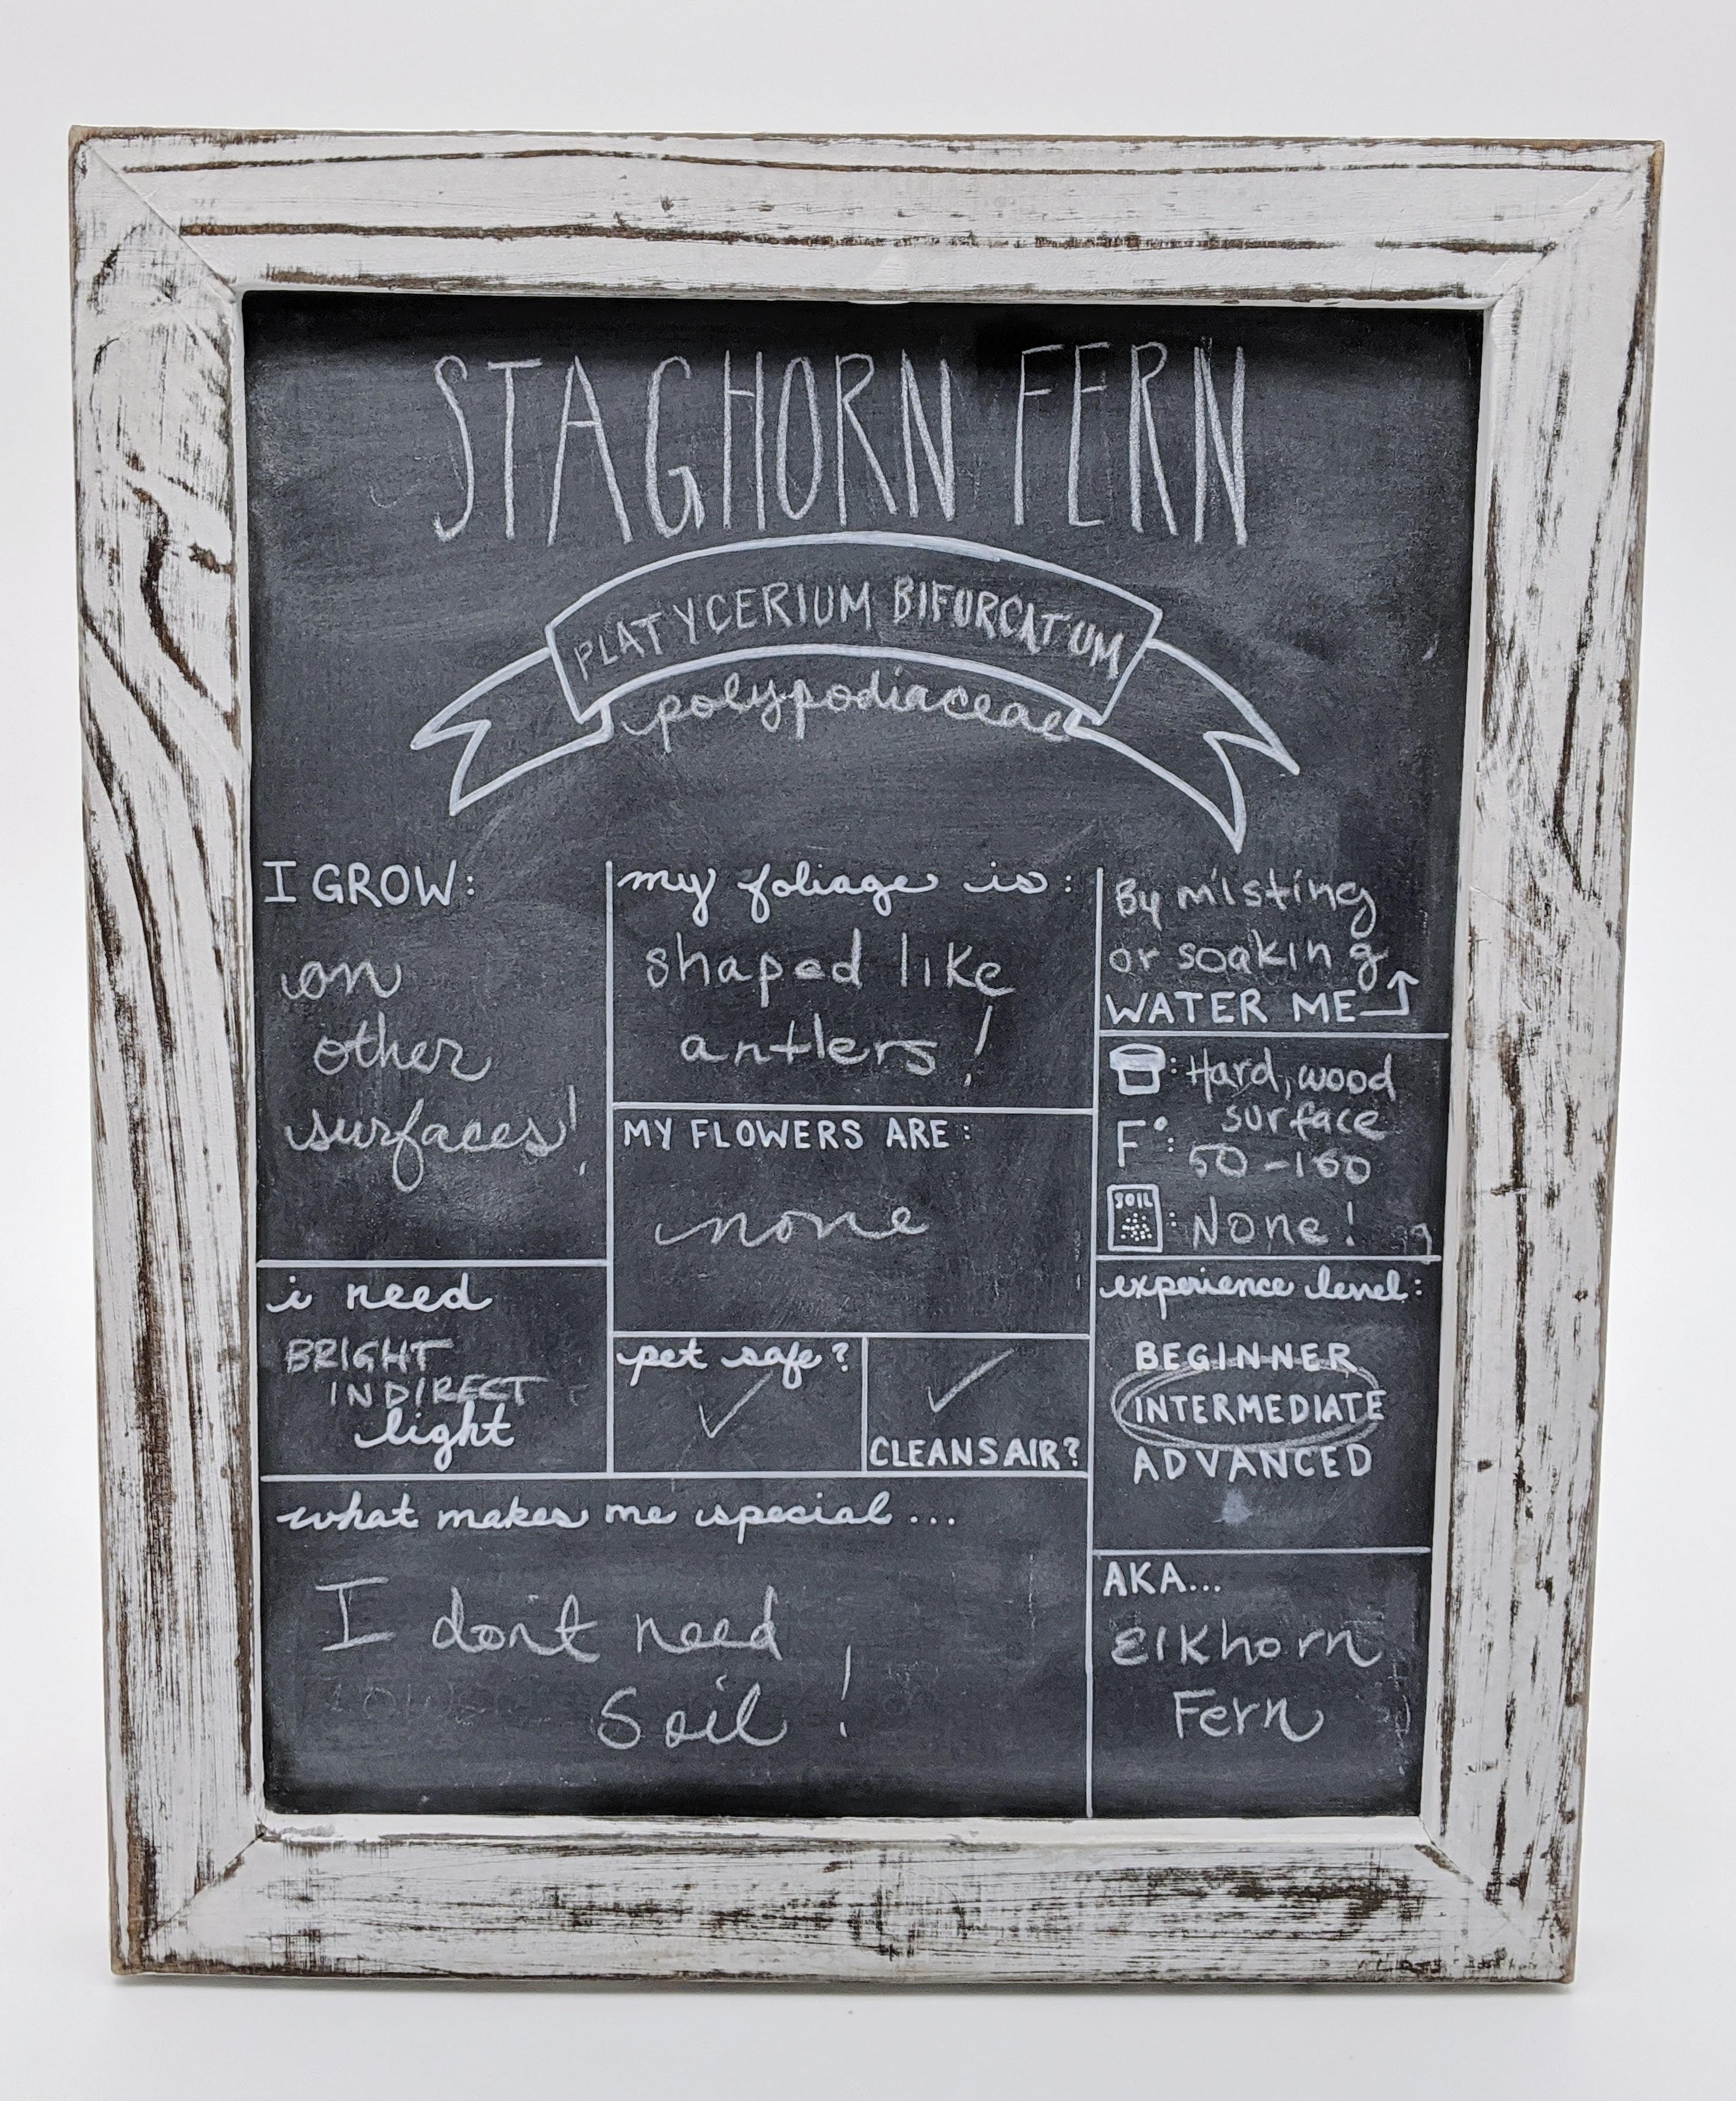 STAGHORN FERN
PLATYCERIUM BIFURCATUM
polypodiaceae
I GROW:
on
other
surfaces!
i need
BRIGHT
INDIRECT
light
my foliage is:
shaped like
antlers!
MY FLOWERS ARE:
none
pet safe?
CLEANS AIR?
what makes me special...
I don't need
Soil!
By misting
or soaking
WATER ME
: Hard, wood
surface
F°: 50-100
SOIL
: None!
experience level:
BEGINNER
INTERMEDIATE
ADVANCED
AKA...
Elkhorn
Fern